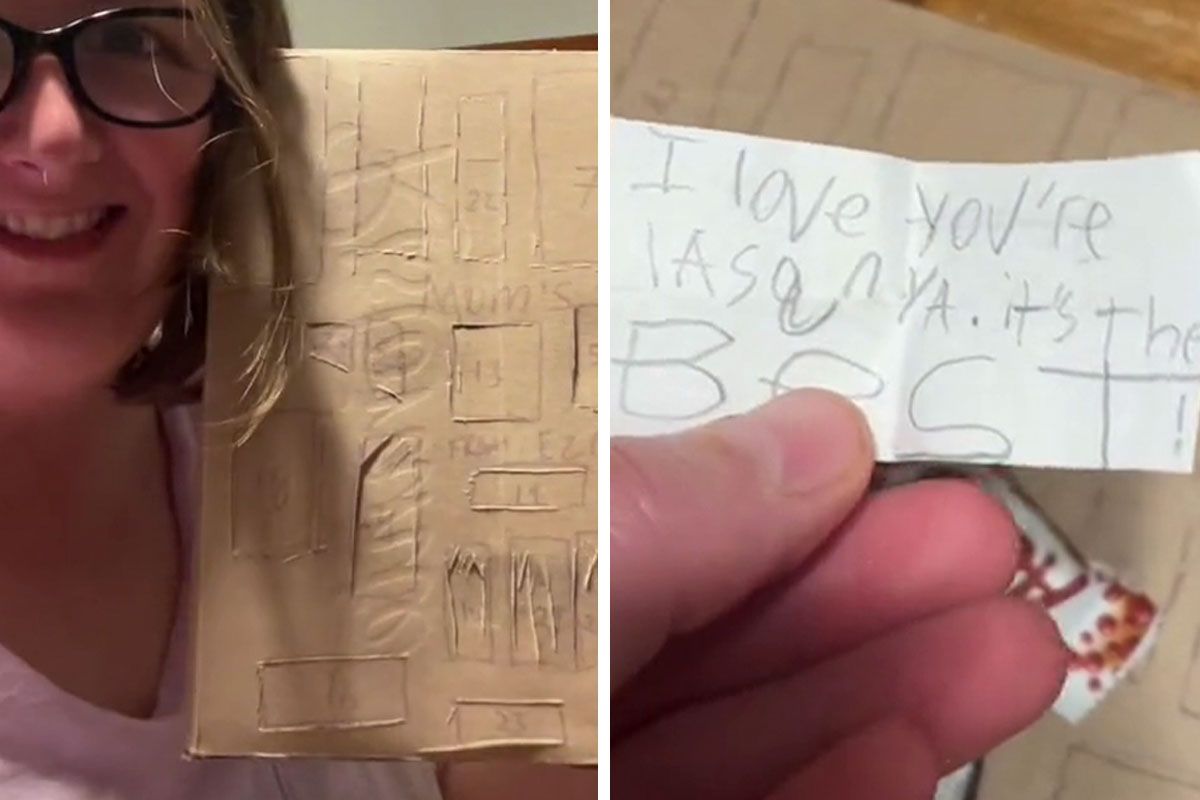 22
7
Mum's
13
FROM EZ
10
19
18
23
2
I love you're
lAsqnyA. it's the
BesT!